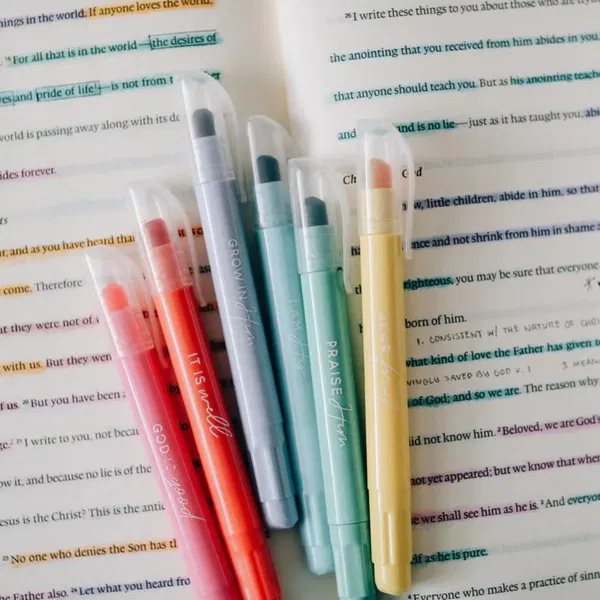 things in the world. If anyone loves the world,
16 For all that is in the world—the desires of
yes and pride of life—is not from
world is passing away along with its
ides forever.
and as you have heard that
come. Therefore
but they were not of
with us. But they were
of us. 20 But you have been
I write to you, not because
it, and because no lie is of the
Jesus is the Christ? This is the
23 No one who denies the Son has
the Father also. 24 Let what you heard from
26 I write these things to you about those who are
the anointing that you received from him abides in you,
that anyone should teach you. But as his anointing teaches
and is no lie—just as it has taught you,
Ch God
little children, abide in him, so that
and not shrink from him in shame
righteous, you may be sure that everyone
born of him.
1. CONSISTENT W/ THE NATURE OF
what kind of love the Father has given to
SAVED BY GOD V. 1
of God; and so we are. The reason why
did not know him. 2 Beloved, we are God's
not yet appeared; but we know that when
we shall see him as he is. 3 And everyone
as he is pure.
4 Everyone who makes a practice of
GOD IS good
IT IS well
GROW IN Him
I AM His
PRAISE Him